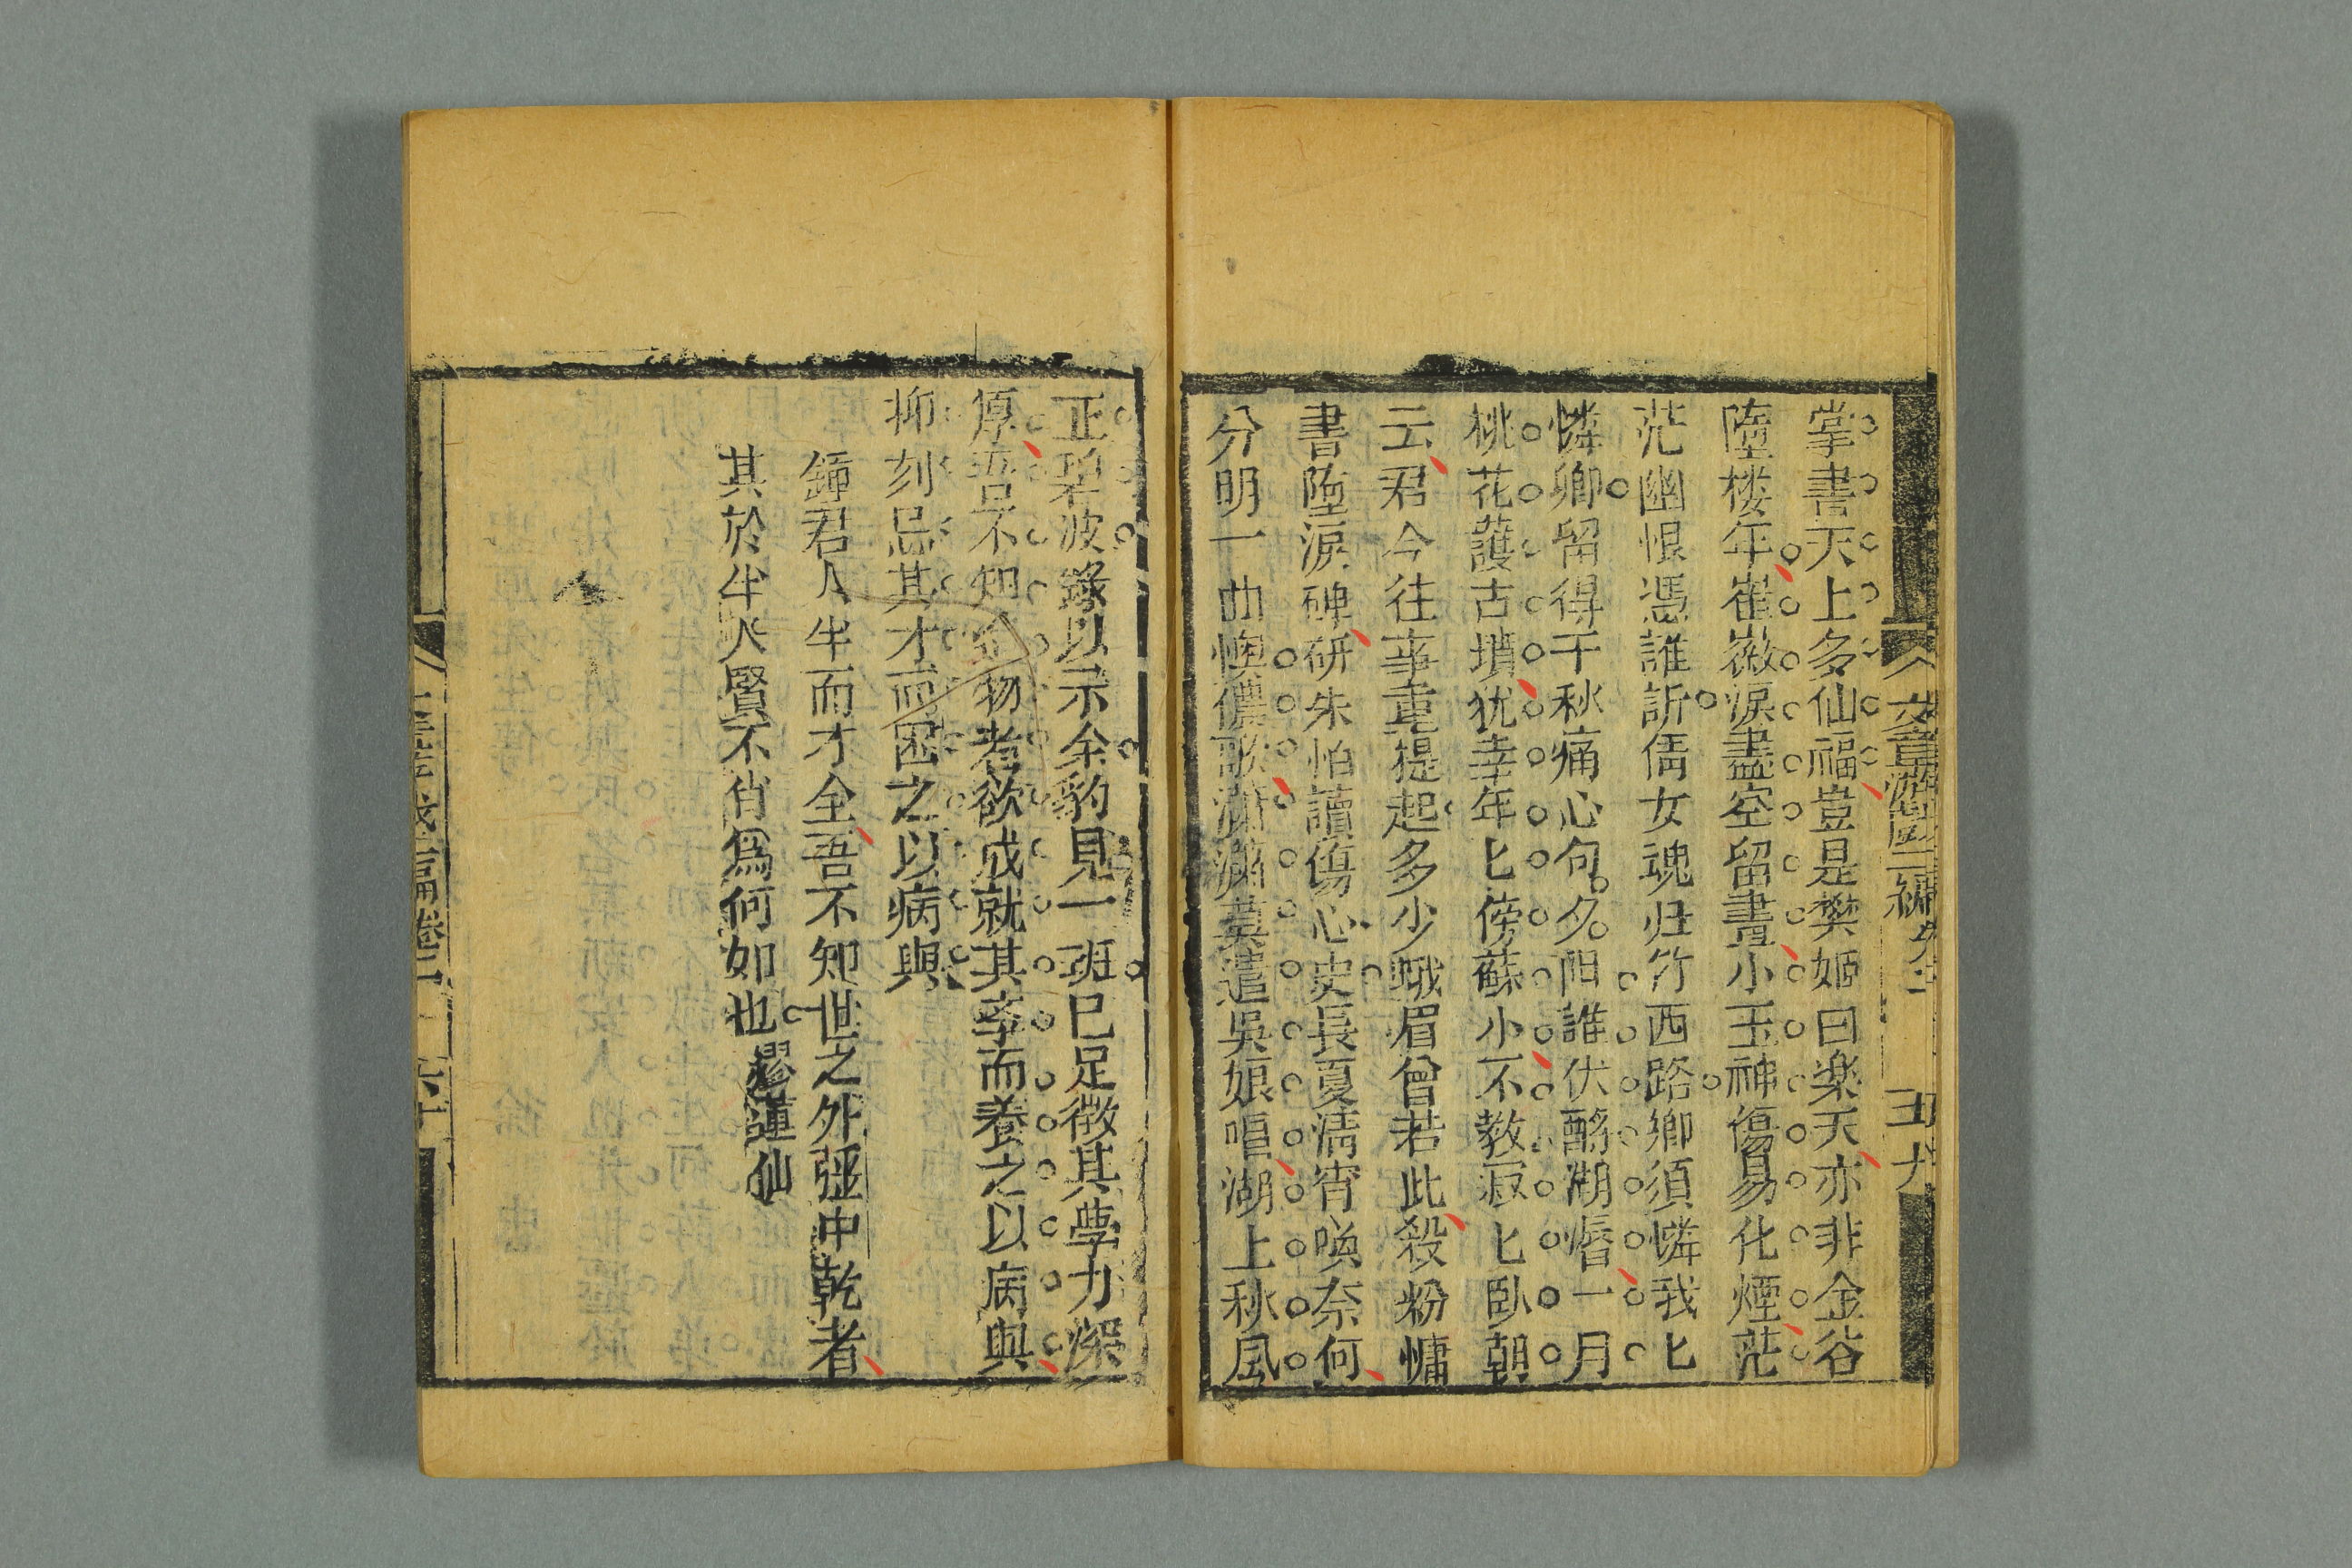 掌書天上多仙福豈是樊姬曰楽天亦非金谷
墮楼年崔嶶淚盡空留畫小玉神傷易化煙茫
茫幽恨憑誰訴倩女魂归竹西路卿須憐我匕
憐卿留得千秋痛心句夕阳誰伏酹湖濱一月
桃花護古墳犹幸年匕傍蘇小不教寂匕卧朝
云君今往事重提起多少蛾眉曾若此殺粉慵
書墮淚碑研朱怕讀傷心史長夏清宵喚奈何
分明一曲懊儂歌瀟瀟莫遣吳娘唱湖上秋風
正碧波錄以示余豹見一班已足徵其學力深
原吾不知 物者欲成就其孝而養之以病與
抑刻忌其才而困之以病與
鐘君人半而才全吾不知世之外强中乾者
其於半人賢不肖爲何如也 繆蓮仙